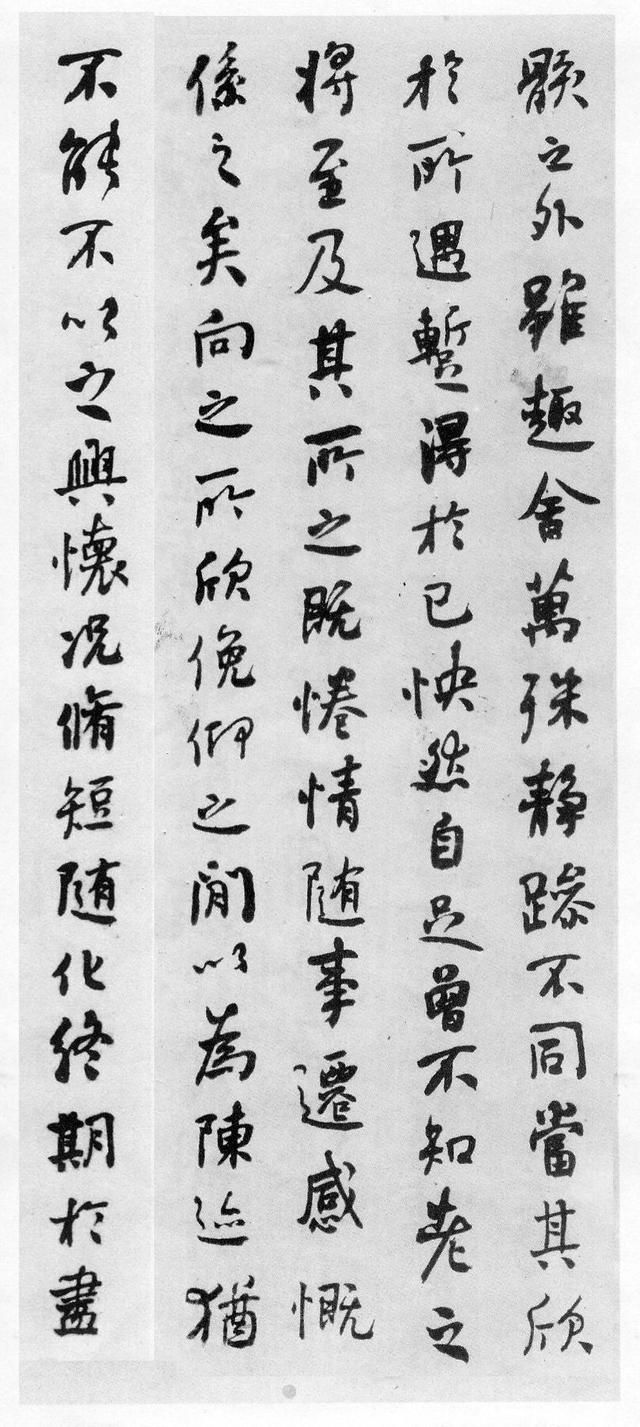 骸之外雖趣舍萬殊静躁不同當其欣
於所遇蹔得於己怏然自足曾不知老之
将至及其所之既惓情随事遷感慨
係之矣向之所欣俛仰之閒以為陳迹猶
不能不以之興懷况脩短随化終期於盡